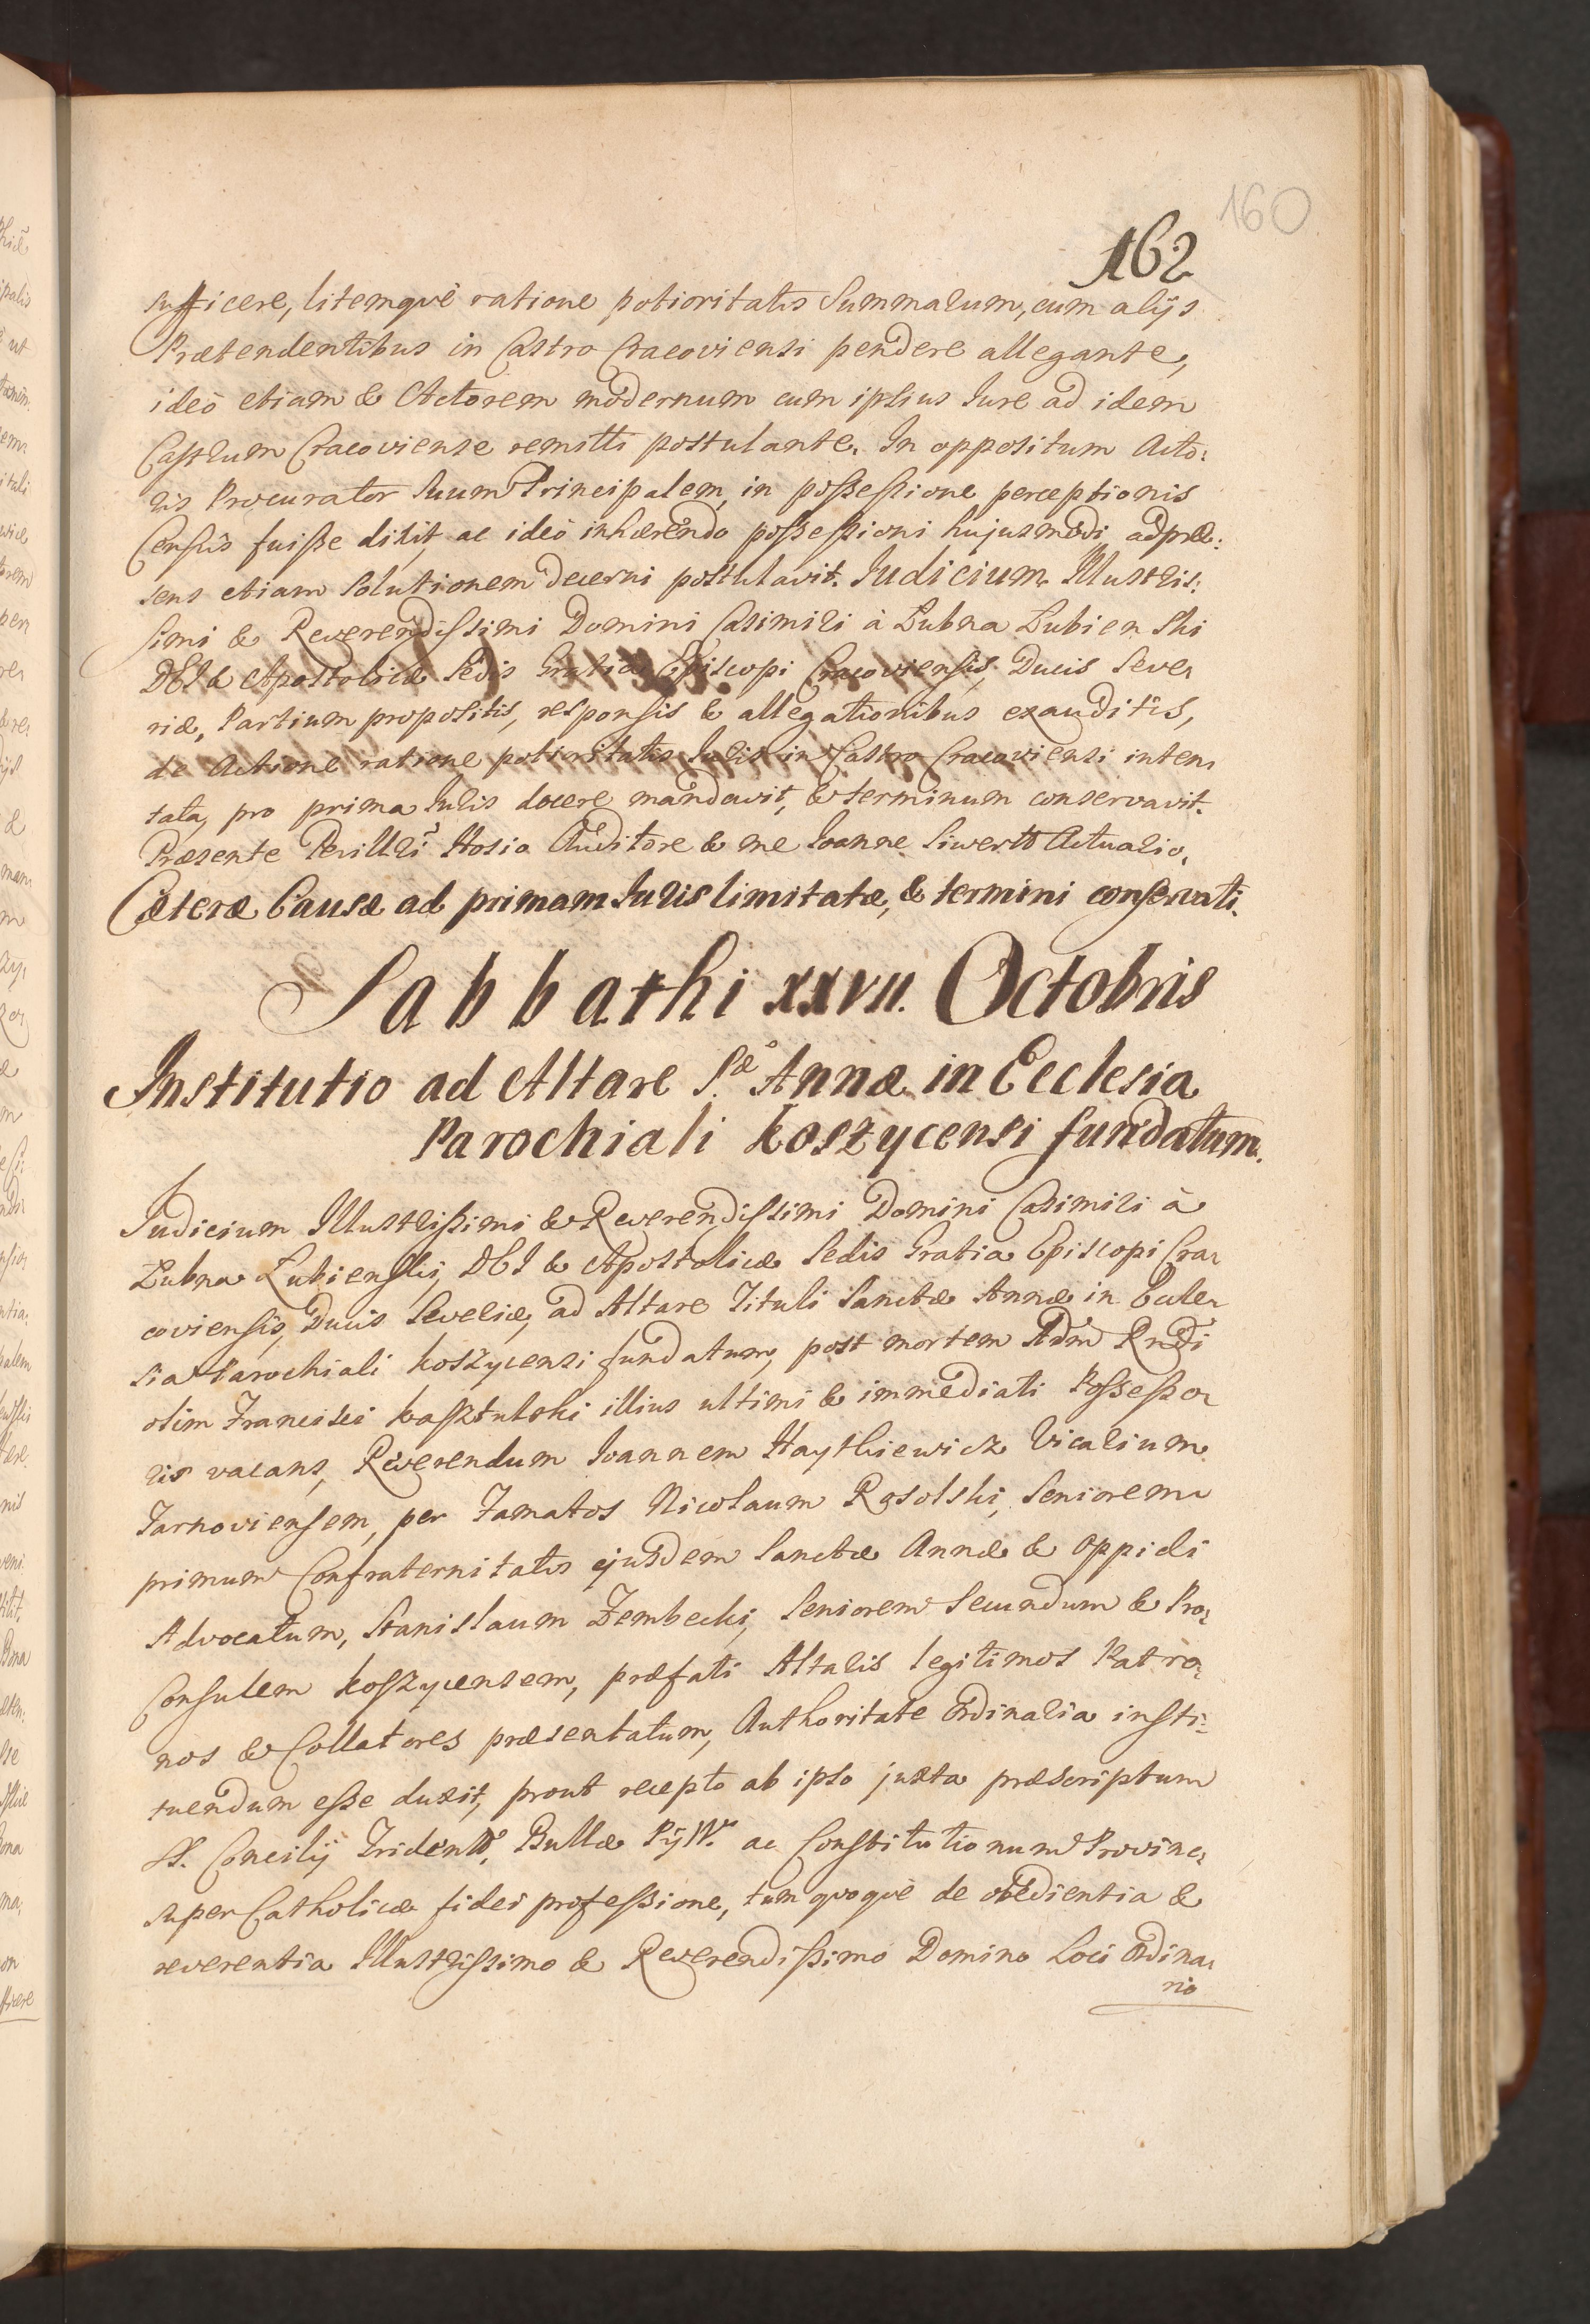 160
162
sufficere, litemquè ratione potioritatis Summarum, cum alijs
Prætendentibus in Castro Cracoviensi pendere allegante,
ideò etiam & Actorem modernum cum ipsius Iure ad idem
Castrum Cracoviense remitti postulante. In oppositum Acto:
ris Procurator suum Principalem, in possessione perceptionis
Censûs fuisse dixit, ac ideò inhærendo possessioni hujusmodi, ad præ:
sens etiam solutionem decerni postulavit. Iudicium Illustris:
simi & Reverendissimi Domini Casimiri à Łubna Łubienski
DEI & Apostolicæ Sedis Gratia Episcopi Cracoviensis, Ducis Seve,
riæ, Partium propositis, responsis & allegationibus exauditis,
de Actione ratione potioritatis Iuris in Castro Cracoviensi inten,
tata, pro prima Iuris docere mandavit, & terminum conservavit.
Præsente Perillri Hosio Auditore & me Ioanne Siwerth Actuario.
Cæteræ Causæ ad primam Iuris limitatæ, & termini conservati.
Sabbathi XXVII. Octobris
Institutio ad Altare S.æ Annæ in Ecclesia
Parochiali Koszycensi fundatum.
Iudicium Illustrissimi & Reverendissimi Domini Casimiri à
Łubna Łubienski, DEI & Apostolicæ Sedis Gratia Episcopi Cra,
coviensis, Ducis Severiæ, ad Altare Tituli Sanctæ Annæ in Eccle,
sia Parochiali Koszycensi fundatum, post mortem Adm Rndi
olim Francisci Kasztulski illius ultimi & immediati Possesso,
ris vacans, Reverendum Ioannem Haythiewicz Vicarium
Tarnoviensem, per Famatos Nicolaum Rosolski, Seniorem
primum Confraternitatis ejusdem Sanctæ Annæ & Oppidi
Advocatum, Stanislaum Zembecki, Seniorem Secundum & Pro,
Consulem Koszycensem, præfati Altaris legitimos Patro,
nos & Collatores præsentatum, Authoritate Ordinaria insti:
tuendum esse duxit, prout recepto ab ipso juxta præscriptum
S. Concilij Tridentt, Bullæ Pij IV. ac Constitutionum Provinc,
super Catholicæ fidei professione, tum quoquè de obedientia &
reverentia Illustrissimo & Reverendissimo Domino Loci Ordina,
rio